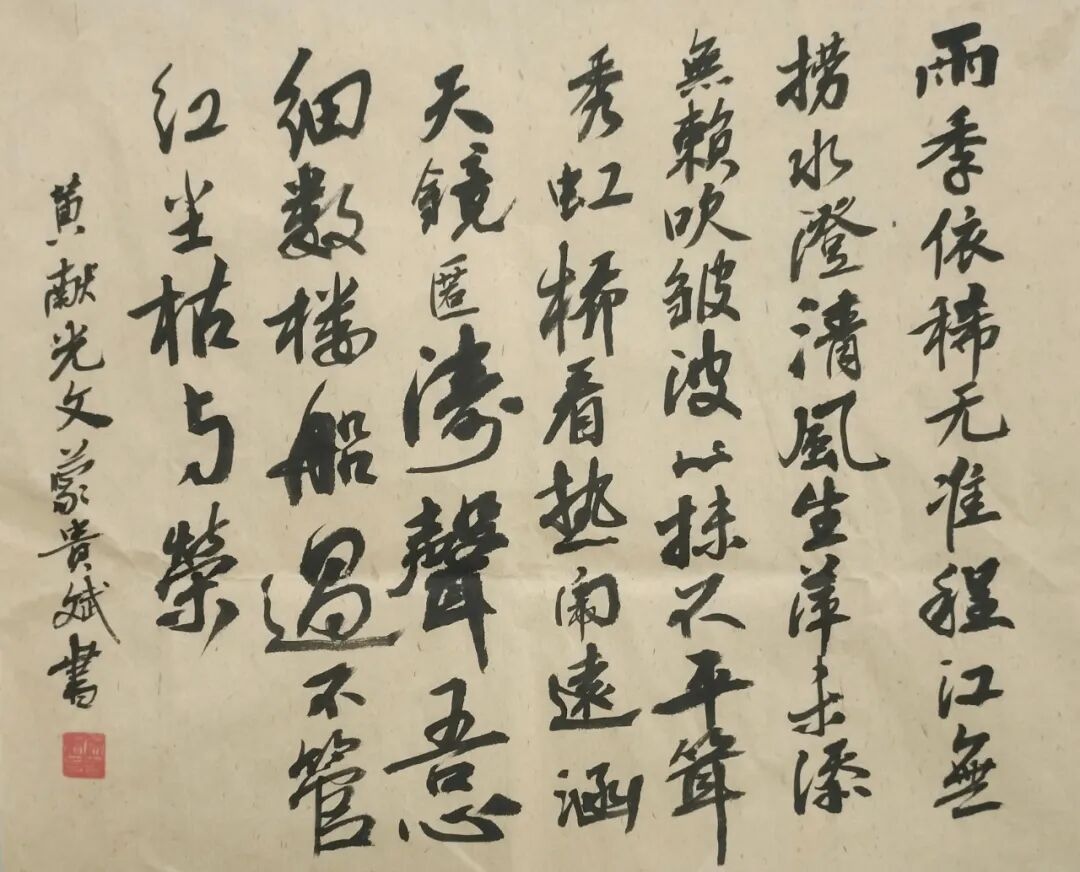 雨季依稀无准程江無
捞水澄清風生萍末添
無賴吹皺波心抹不平聳
秀虹桥看热闹遠涵
天鏡匿濤聲吾
细数楼船過不管
红尘枯与榮
黄献光文蒙貴斌書